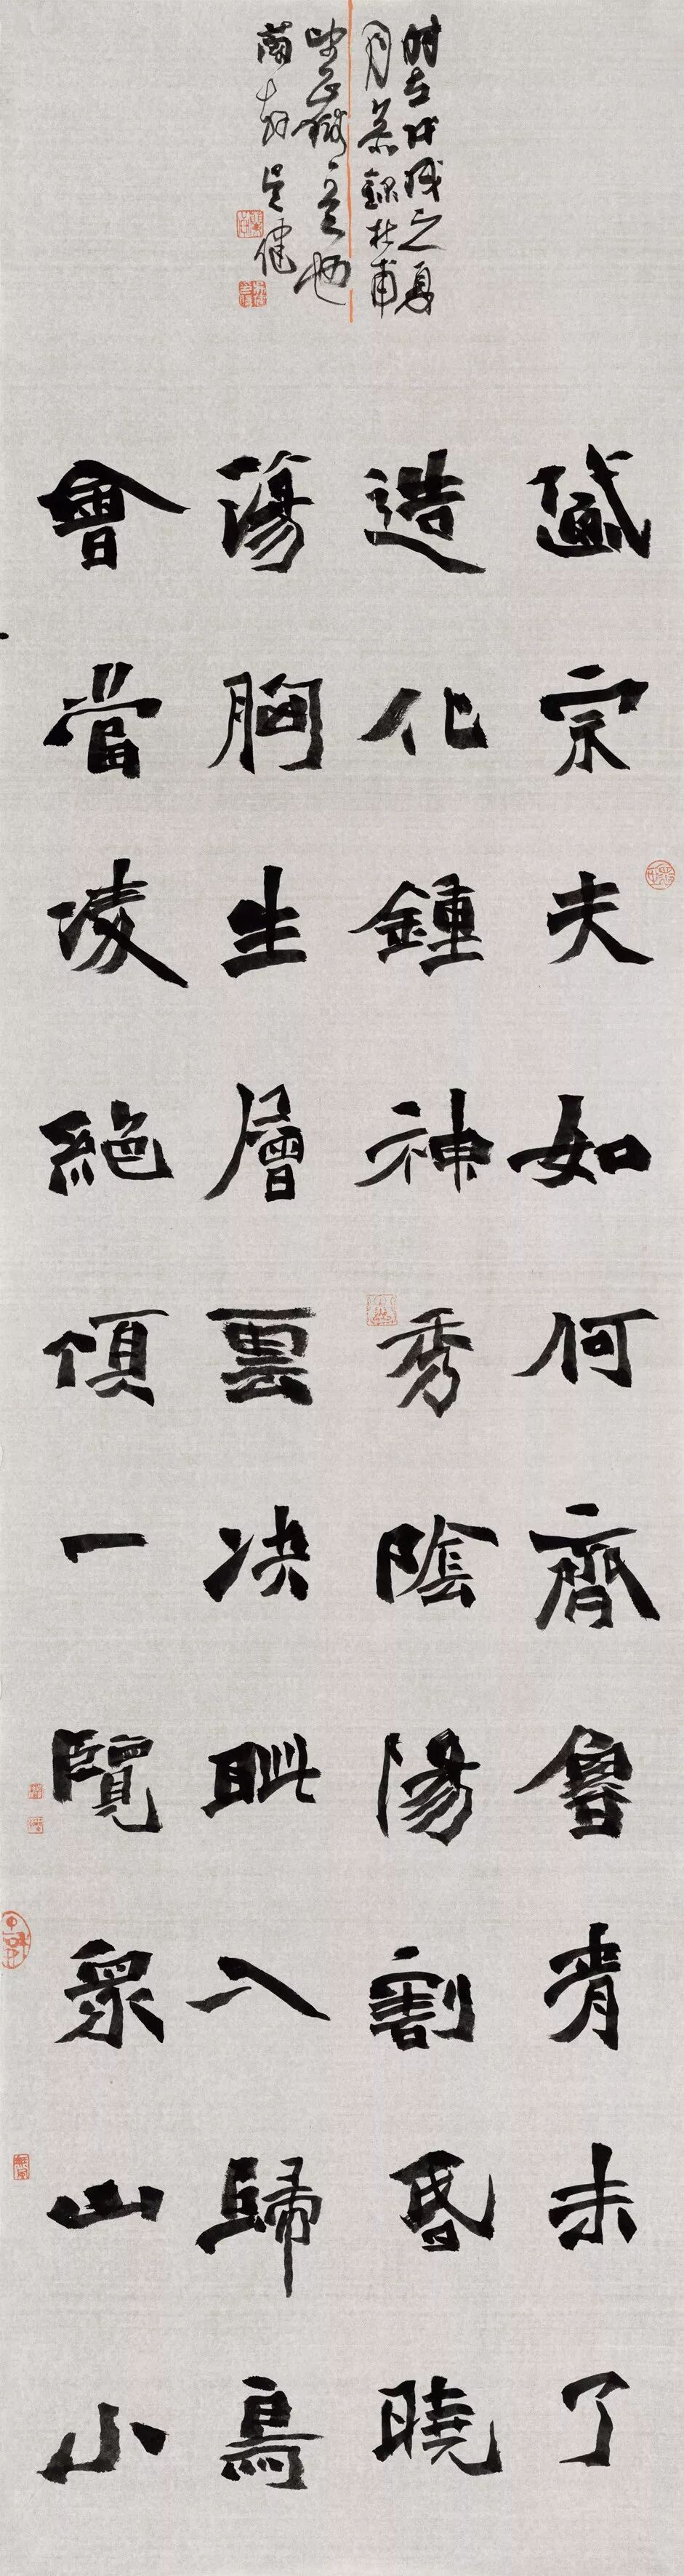 岱宗夫如何齊魯青未了
造化鍾神秀陰陽割昏曉
蕩胸生層雲决眦入歸鳥
會當凌絕頂一覽衆山小
時在戊戌之夏
月錄杜甫
也
吳健